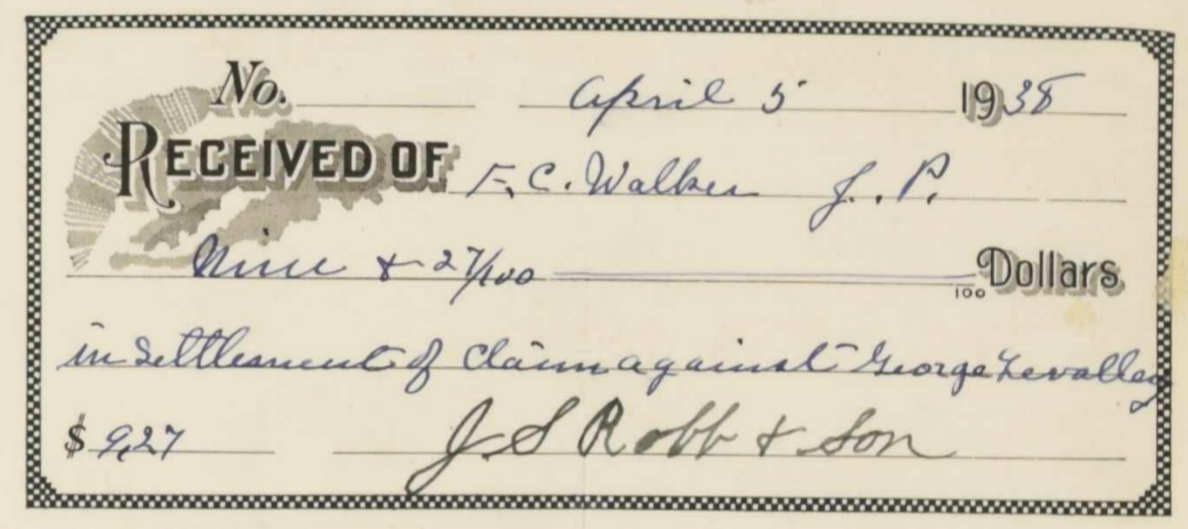 No. April 5 1938
RECEIVED OF F. C. Walker J. P.
Nine & 27/100 100 Dollars
in settlement of claim against George Levalley
$ 9.27 J. S Robb & Son